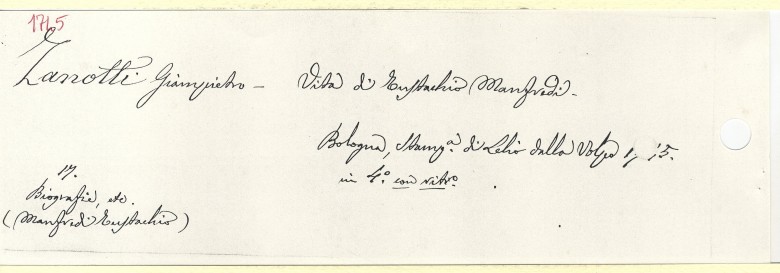 1745
Zanotti Giampietro – Vita di Eustachio Manfredi –
Bologna, Stamp.ª di Lelio dalla Volpe 1745.
in 4.º con ritr.º
Biografie, etc.
(Manfredi Eustachio)